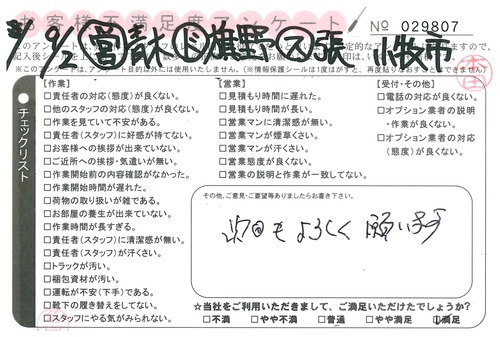 お客様不満足度アンケート
No 029807
9/5 営 青木 ド 鹿野 ② 張 小牧市
※このアンケートは、アンケート目的以外には使用いたしません。(※情報保護シールは1度はがすと、再度貼りなおすことはできません)
チェックリスト
[作業]
□責任者の対応(態度)が良くない。
□他のスタッフの対応(態度)が良くない。
□作業を見ていて不安がある。
□責任者(スタッフ)に好感が持てない。
□お客様への挨拶が出来ていない。
□ご近所への挨拶・気遣いが無い。
□作業開始前の内容確認がなかった。
□作業開始時間が遅れた。
□荷物の取り扱いが雑である。
□お部屋の養生が出来ていない。
□作業時間が長すぎる。
□責任者(スタッフ)に清潔感が無い。
□責任者(スタッフ)が汗くさい。
□トラックが汚い。
□梱包資材が汚い。
□運転が不安(下手)である。
□靴下の履き替えをしてない。
□スタッフにやる気がみられない。
[営業]
□見積もり時間に遅れた。
□見積もり時間が長い。
□営業マンに清潔感が無い。
□営業マンが煙草くさい。
□営業マンが汗くさい。
□営業態度が良くない。
□営業の説明と作業が一致してない。
[受付・その他]
□電話の対応が良くない。
□オプション業者の説明・作業が良くない。
□オプション業者の対応(態度)が良くない。
その他、ご意見・ご要望等ありましたらお書き下さい。
次回もよろしく願います
☆当社をご利用いただきまして、ご満足いただけたでしょうか?
□不満 □やや不満 □普通 □やや満足 □満足